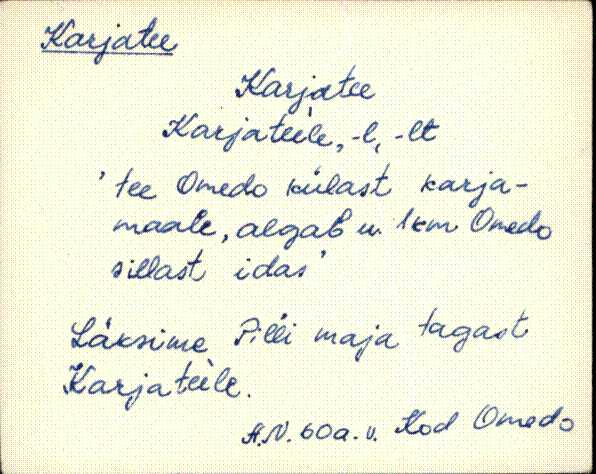 Karjatee
Karjatee
Karjateèle, -l, -lt
'tee Omedo külast karja-
maale, algab u. 1km Omedo
sillast idas'
Läksime Pilli maja tagast
Karjateèle.
H.N. 60a. v. Kod Omedo